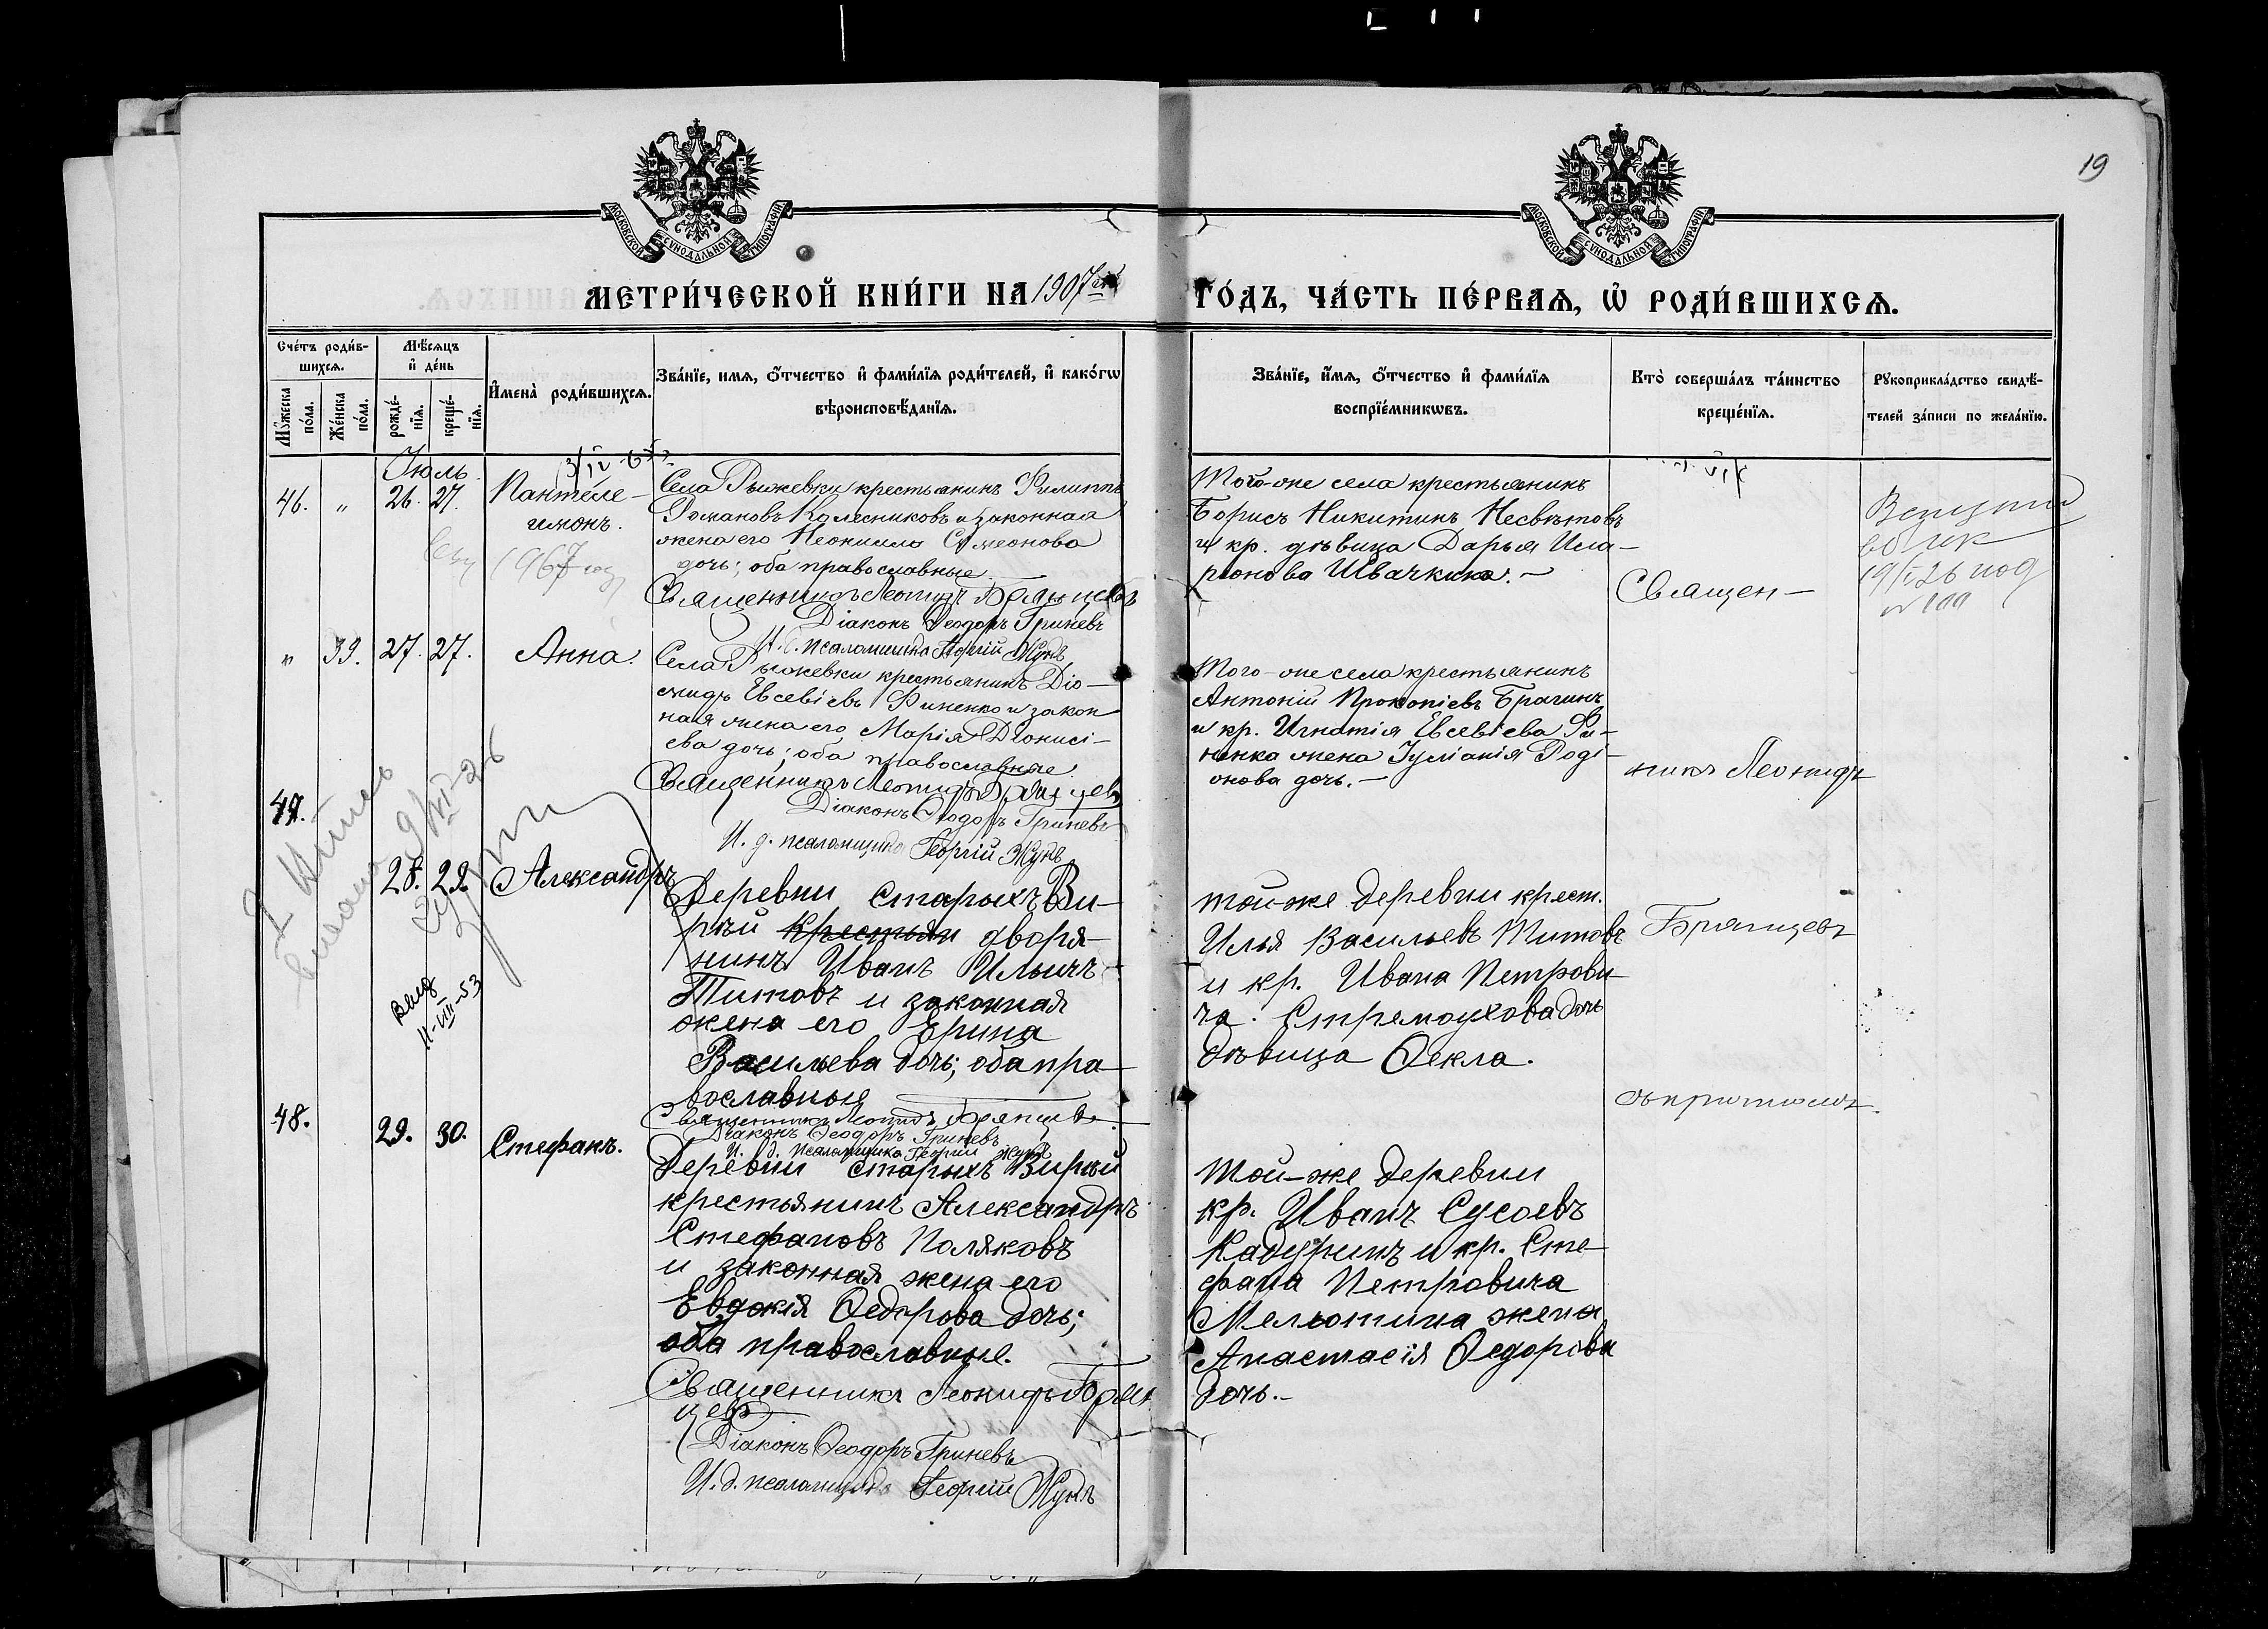 МОСКОВСКОЙ СѴНОДАЛЬНОЙ ТИПОГРАФІИ
МОСКОВСКОЙ СѴНОДАЛЬНОЙ ТИПОГРАФІИ
19
МЕТРИ́ЧЕСКОЙ КНИ́ГИ НА 1907
ГО́ДЪ, ЧА́СТЬ ПЕ́РВАѦ, Ѡ҆ РОДИ́ВШИХСѦ.
Сче́тъ роди́в-
шихсѧ.
Мѹ́жеска по́ла.
Же́нска по́ла.
Мѣ́сѧцъ
и҆ де́нь
рожде́-
нїѧ.
креще́-
нїѧ.
И҆мена̀ роди́вшихсѧ.
Зва́нїе, имѧ, о҆́тчество и҆ фами́лїѧ роди́телей, и҆ како́гѡ
вѣроисповѣ́данїѧ.
Зва́нїе, и҆́мѧ, о҆́тчество и҆ фами́лїѧ
воспрїе́мникѡвъ.
Кто̀ соверша́лъ та́инство
креще́нїѧ.
Рѹкоприкла́дство свидѣ́-
телей за́писи по жела́нїю.
Іюль.
46. „ 26. 27. Пантеле-
имонъ.
Села Рыжевки крестьянинъ Филиппъ
Романовъ Колесниковъ и законная
жена его Неонилла Симеонова
дочь; оба православные
Священникъ Леонидъ Брянцевъ
Діаконъ Ѳеодоръ Гриневъ
И. д. псаломщика Георгій Жукъ
Того-же села крестьянинъ
Борисъ Никитинъ Несвѣтовъ
и кр. дѣвица Дарья Ила-
ріонова Швачкина. —
Священ-
1967 год
19/I 26 год
„ 39. 27. 27. Анна.
Села Рыжевки крестьянинъ Діо-
мидъ Евсевіевъ Финенко и закон
ная жена его Марія Діонисі-
ева дочь; оба православные
Священникъ Леонидъ Брянцевъ
Діаконъ Ѳеодоръ Гриневъ
И. д. псаломщика Георгій Жукъ
Того-же села крестьянинъ
Антоній Прокопіевъ Брагинъ
и кр. Игнатія Евсевіева Фи-
ненка жена Іуліанія Роді-
онова дочь. —
никъ Леонидъ
47.
28. 29. Александръ
Деревни Старыхъ Ви-
рѣй крестьян дворя-
нинъ Иванъ Ильичъ
Титовъ и законная
жена его Ерина
Васильева дочь; оба пра-
вославные
Священникъ Леонидъ Брянцевъ
Діаконъ Ѳеодоръ Гриневъ
И. д. псаломщика Георгій Жукъ
той-же деревни крест.
Илья Васильевъ Титовъ
и кр. Ивана Петрови-
ча Стремоухова дочь
дѣвица Ѳекла.
Брянцевъ
11-VIII-53
48.
29. 30. Стефанъ.
Деревни Старыхъ Вирѣй
крестьянинъ Александръ
Стефановъ Поляковъ
и законная жена его
Евдокія Ѳедорова дочь;
оба православные.
Священникъ Леонидъ Брян
цевъ
Діаконъ Ѳеодоръ Гриневъ
И. д. псаломщика Георгій Жукъ
той-же деревни
кр. Иванъ Сусоевъ
Кадуринъ и кр. Сте-
фана Петровича
Мелютина жена
Анастасія Ѳедорова
дочь. —
съ причтомъ.